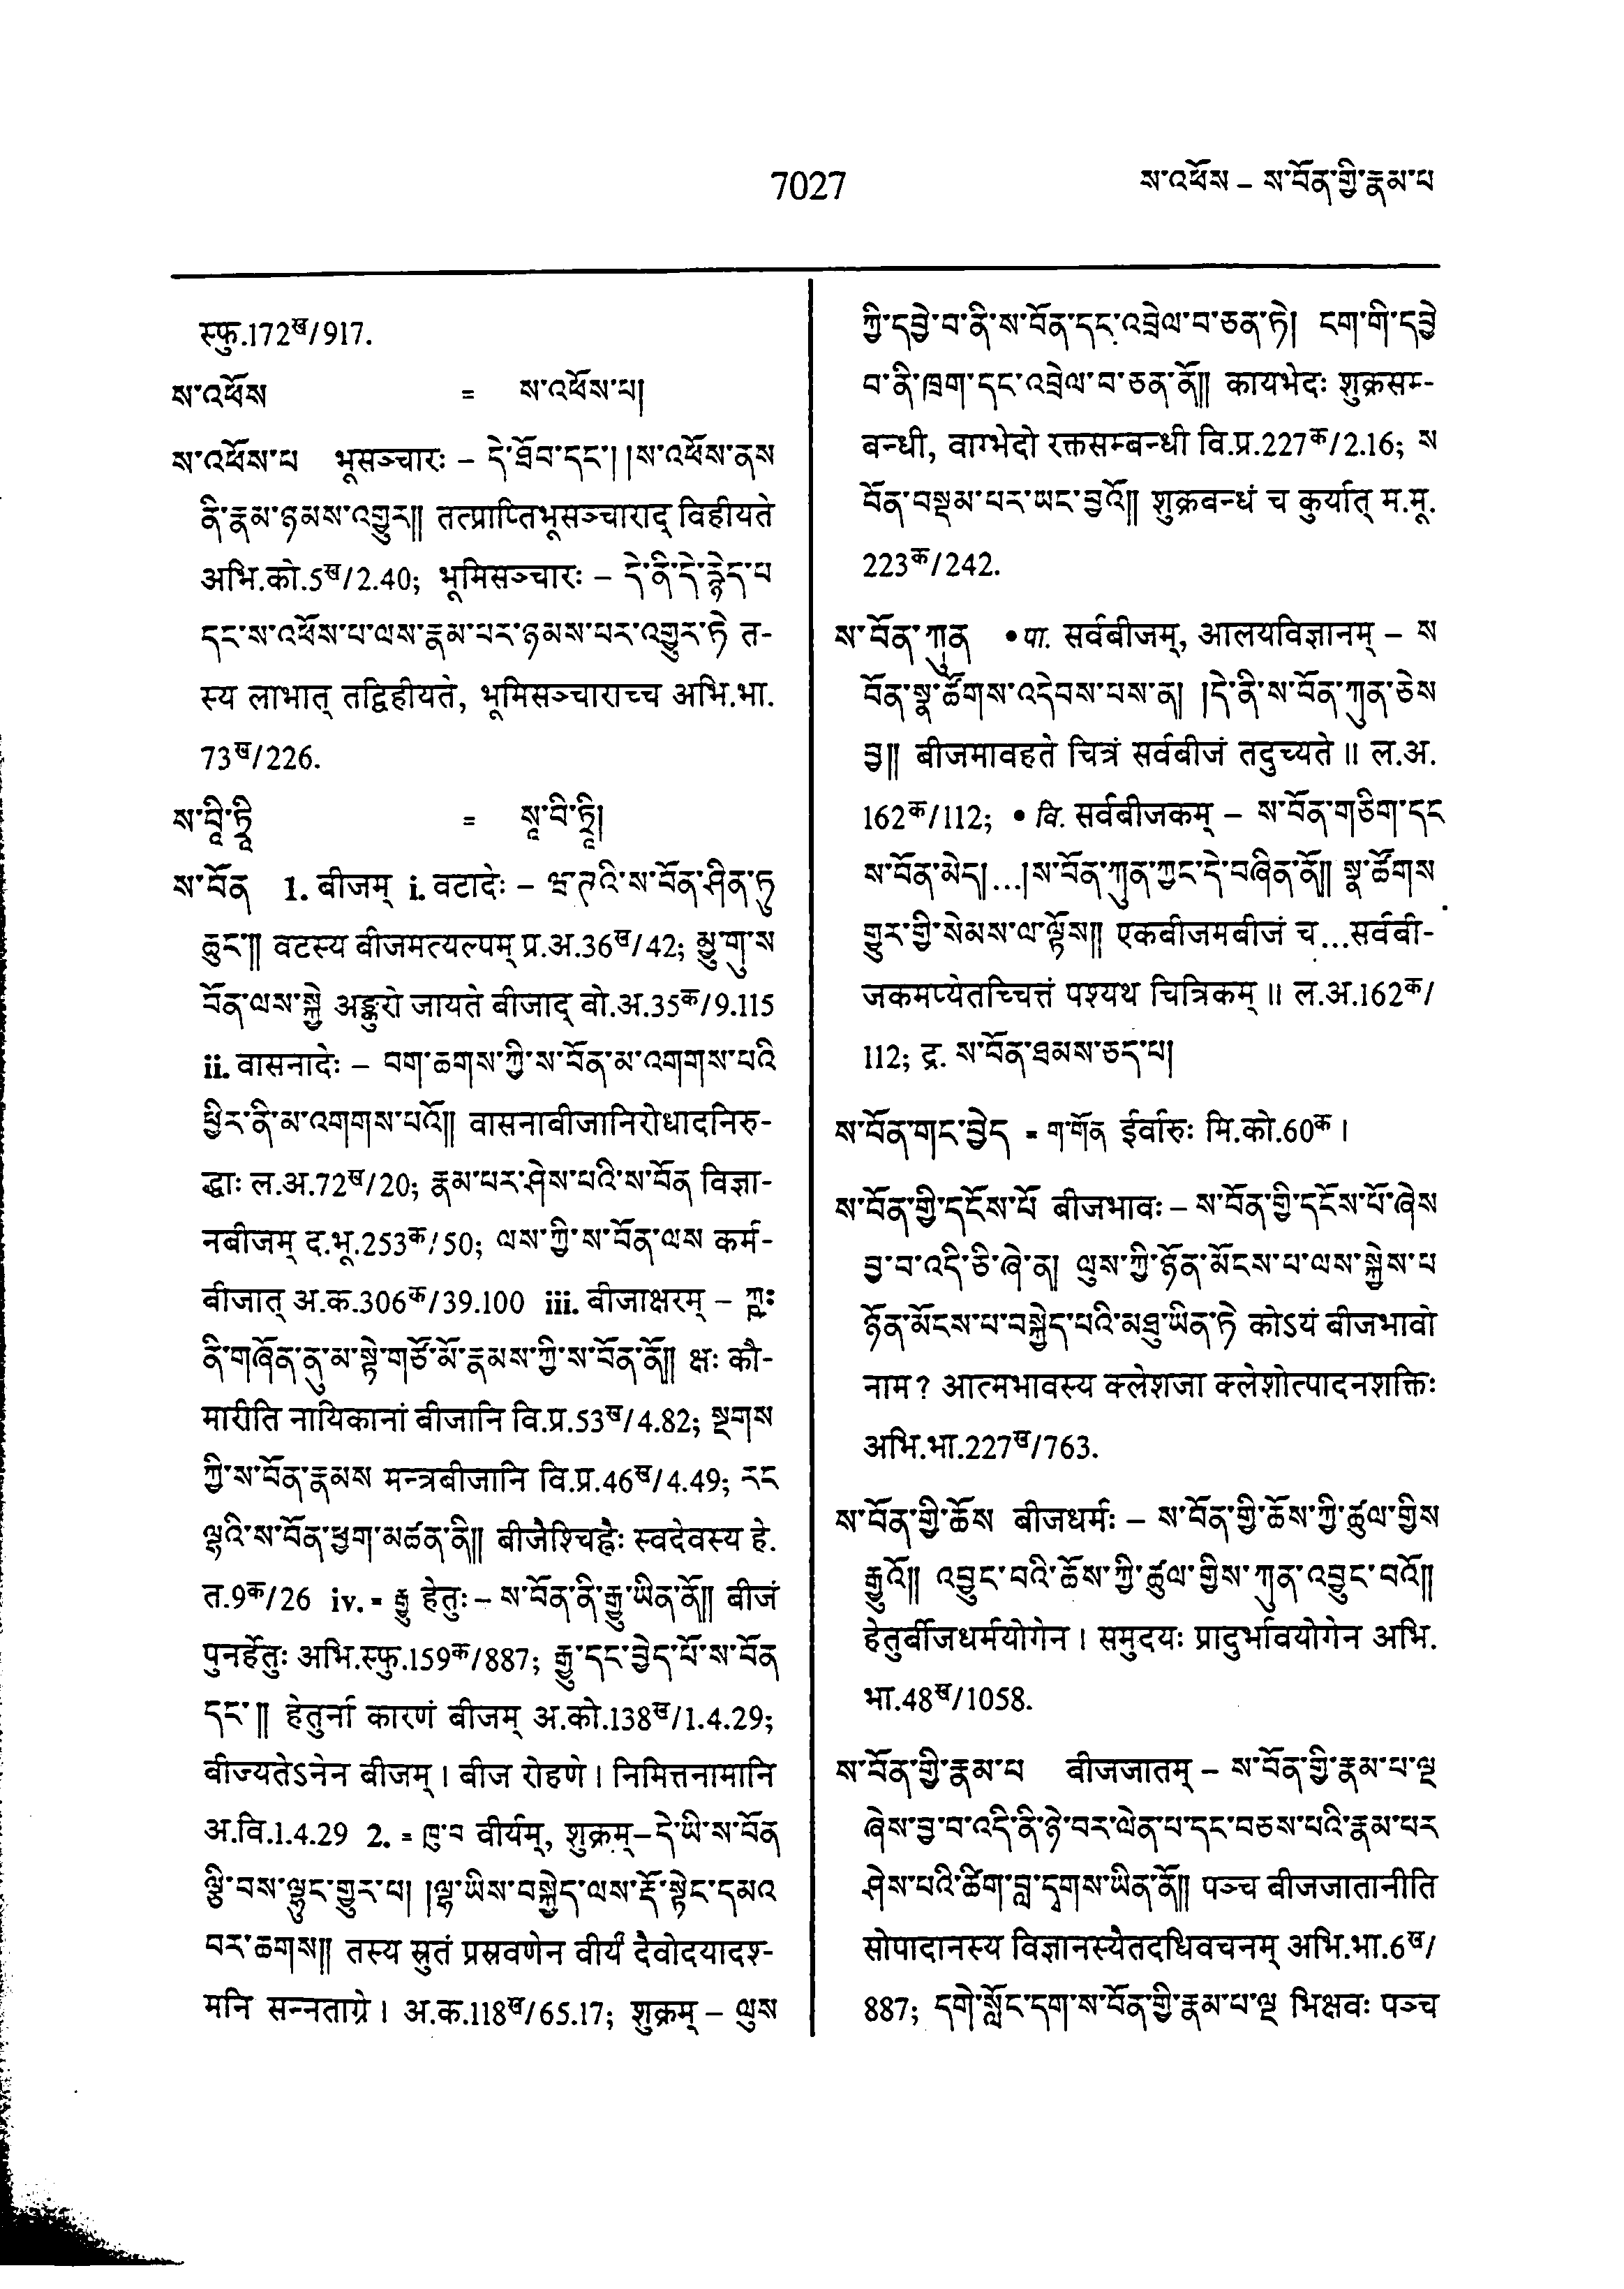 7027
ས་འཕོས – ས་བོན་གྱི་རྣམ་པ
स्फु.172ख/917.
ས་འཕོས = ས་འཕོས་པ།
ས་འཕོས་པ भूसञ्चारः – དེ་ཐོབ་དང་། །ས་འཕོས་ནས
ནི་རྣམ་ཉམས་འགྱུར།། तत्प्राप्तिभूसञ्चाराद् विहीयते
अभि.को.5ख/2.40; भूमिसञ्चारः – དེ་ནི་དེ་རྙེད་པ
དང་ས་འཕོས་པ་ལས་རྣམ་པར་ཉམས་པར་འགྱུར་ཏེ त-
स्य लाभात् तद्विहीयते, भूमिसञ्चाराच्च अभि.भा.
73ख/226.
ས་བཱི་ཏྲཱི = སཱ་བི་ཏྲཱི།
ས་བོན 1. बीजम् i. वटादेः – ཝ་ཊའི་ས་བོན་ཤིན་ཏུ
ཆུང་།། वटस्य बीजमत्यल्पम् प्र.अ.36ख/42; མྱུ་གུ་ས
བོན་ལས་སྐྱེ अङ्कुरो जायते बीजाद् बो.अ.35क/9.115
ii. वासनादेः – བག་ཆགས་ཀྱི་ས་བོན་མ་འགགས་པའི
ཕྱིར་ནི་མ་འགགས་པའོ།། वासनाबीजानिरोधादनिरु-
द्धाः ल.अ.72ख/20; རྣམ་པར་ཤེས་པའི་ས་བོན विज्ञा-
नबीजम् द.भू.253क/50; ལས་ཀྱི་ས་བོན་ལས कर्म-
बीजात् अ.क.306क/39.100 iii. बीजाक्षरम् – ཀྵཿ
ནི་གཞོན་ནུ་མ་སྟེ་གཙོ་མོ་རྣམས་ཀྱི་ས་བོན་ནོ།། क्षः कौ-
मारीति नायिकानां बीजानि वि.प्र.53ख/4.82; སྔགས
ཀྱི་ས་བོན་རྣམས मन्त्रबीजानि वि.प्र.46ख/4.49; རང
ལྷའི་ས་བོན་ཕྱག་མཚན་ནི།། बीजैश्चिह्नैः स्वदेवस्य हे.
त.9क/26 iv. = རྒྱུ हेतुः – ས་བོན་ནི་རྒྱུ་ཡིན་ནོ།། बीजं
पुनर्हेतुः अभि.स्फु.159क/887; རྒྱུ་དང་བྱེད་པོ་ས་བོན
དང་།། हेतुर्ना कारणं बीजम् अ.को.138ख/1.4.29;
वीज्यतेऽनेन बीजम्। बीज रोहणे। निमित्तनामानि
अ.वि.1.4.29 2. = ཁུ་བ वीर्यम्, शुक्रम् – དེ་ཡི་ས་བོན
ལྕི་བས་ལྷུང་གྱུར་པ། །ལྷ་ཡིས་བསྐྱེད་ལས་རྡོ་སྟེང་དམའ
བར་ཆགས།། तस्य स्रुतं प्रस्रवणेन वीर्यं दैवोदयादश्-
मनि सन्नताग्रे। अ.क.118ख/65.17; शुक्रम् – ལུས
ཀྱི་དབྱེ་བ་ནི་ས་བོན་དང་འབྲེལ་བ་ཅན་ཏེ། ངག་གི་དབྱེ
བ་ནི་ཁྲག་དང་འབྲེལ་བ་ཅན་ནོ།། कायभेदः शुक्रसम्-
बन्धी, वाग्भेदो रक्तसम्बन्धी वि.प्र.227क/2.16; ས
བོན་བསྡམ་པར་ཡང་བྱའོ།། शुक्रबन्धं च कुर्यात् म.मू.
223क/242.
ས་བོན་ཀུན • पा. सर्वबीजम्, आलयविज्ञानम् – ས
བོན་སྣ་ཚོགས་འདེབས་པས་ན། །དེ་ནི་ས་བོན་ཀུན་ཅེས
བྱ།། बीजमावहते चित्रं सर्वबीजं तदुच्यते ॥ ल.अ.
162क/112; • वि. सर्वबीजकम् – ས་བོན་གཅིག་དང
ས་བོན་མེད།...།ས་བོན་ཀུན་ཀྱང་དེ་བཞིན་ནོ།། སྣ་ཚོགས
གྱུར་གྱི་སེམས་ལ་ལྟོས།། एकबीजमबीजं च...सर्वबी-
जकमप्येतच्चित्तं पश्यथ चित्रिकम् ॥ ल.अ.162क/
112; द्र. ས་བོན་ཐམས་ཅད་པ།
ས་བོན་གང་བྱེད = ག་གོན ईर्वारुः मि.को.60क।
ས་བོན་གྱི་དངོས་པོ बीजभावः – ས་བོན་གྱི་དངོས་པོ་ཞེས
བྱ་བ་འདི་ཅི་ཞེ་ན། ལུས་ཀྱི་ཉོན་མོངས་པ་ལས་སྐྱེས་པ
ཉོན་མོངས་པ་བསྐྱེད་པའི་མཐུ་ཡིན་ཏེ कोऽयं बीजभावो
नाम? आत्मभावस्य क्लेशजा क्लेशोत्पादनशक्तिः
अभि.भा.227ख/763.
ས་བོན་གྱི་ཆོས बीजधर्मः – ས་བོན་གྱི་ཆོས་ཀྱི་ཚུལ་གྱིས
རྒྱུའོ།། འབྱུང་བའི་ཆོས་ཀྱི་ཚུལ་གྱིས་ཀུན་འབྱུང་བའོ།།
हेतुर्बीजधर्मयोगेन। समुदयः प्रादुर्भावयोगेन अभि.
भा.48ख/1058.
ས་བོན་གྱི་རྣམ་པ बीजजातम् – ས་བོན་གྱི་རྣམ་པ་ལྔ
ཞེས་བྱ་བ་འདི་ནི་ཉེ་བར་ལེན་པ་དང་བཅས་པའི་རྣམ་པར
ཤེས་པའི་ཚིག་བླ་དྭགས་ཡིན་ནོ།། पञ्च बीजजातानीति
सोपादानस्य विज्ञानस्यैतदधिवचनम् अभि.भा.6ख/
887; དགེ་སློང་དག་ས་བོན་གྱི་རྣམ་པ་ལྔ भिक्षवः पञ्च